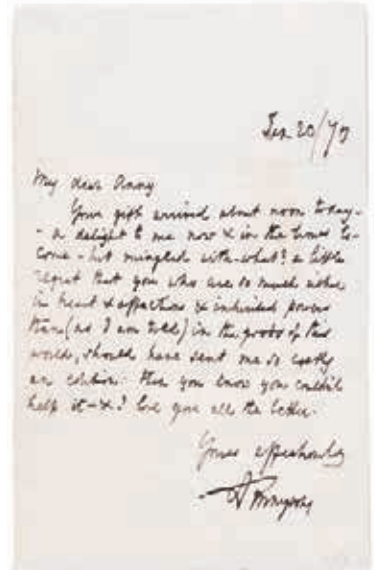 Jan 20/79
My dear Anny
Your gift arrived about noon today-
- a delight to me now & in the times to
come - but mingled with - what? a little
regret that you who are so much richer
in heart & affections & inherited powers
than (as I am told) in the goods of this
world, should have sent me so costly
an edition. But you know you couldn't
help it - & I love you all the better.
Yours affectionately
A Tennyson